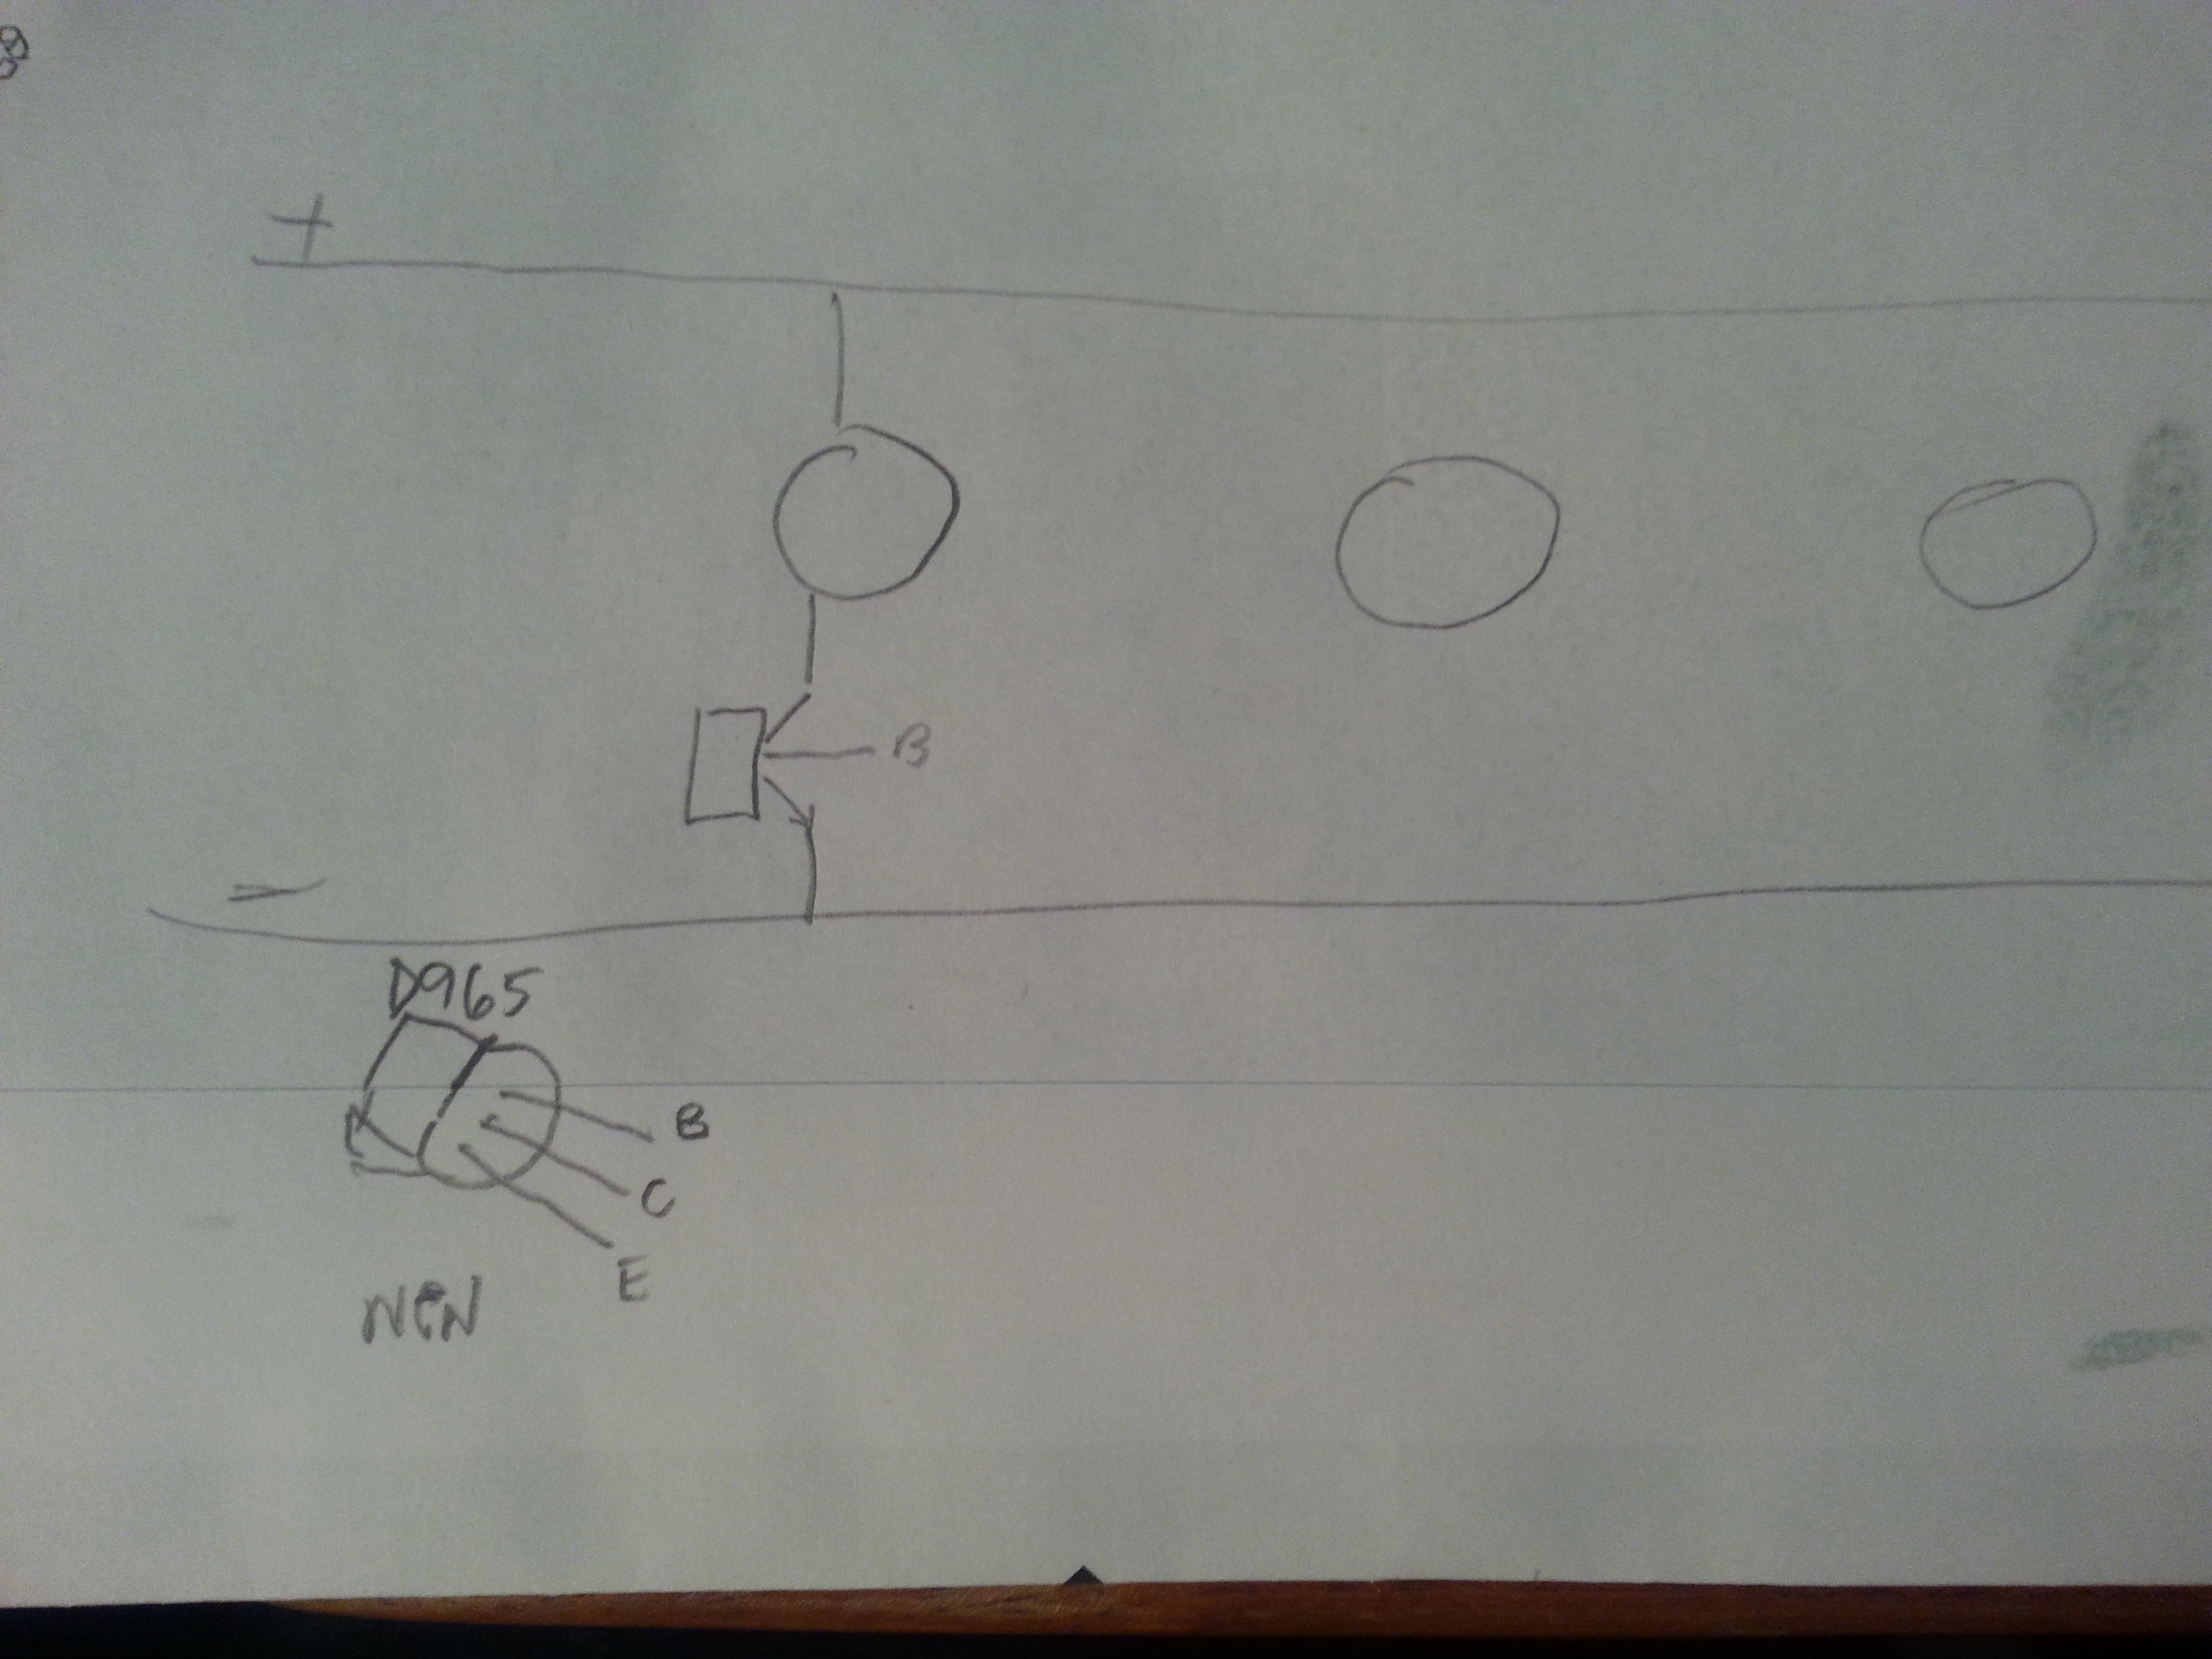 +
B
-
D965
B
C
E
NPN